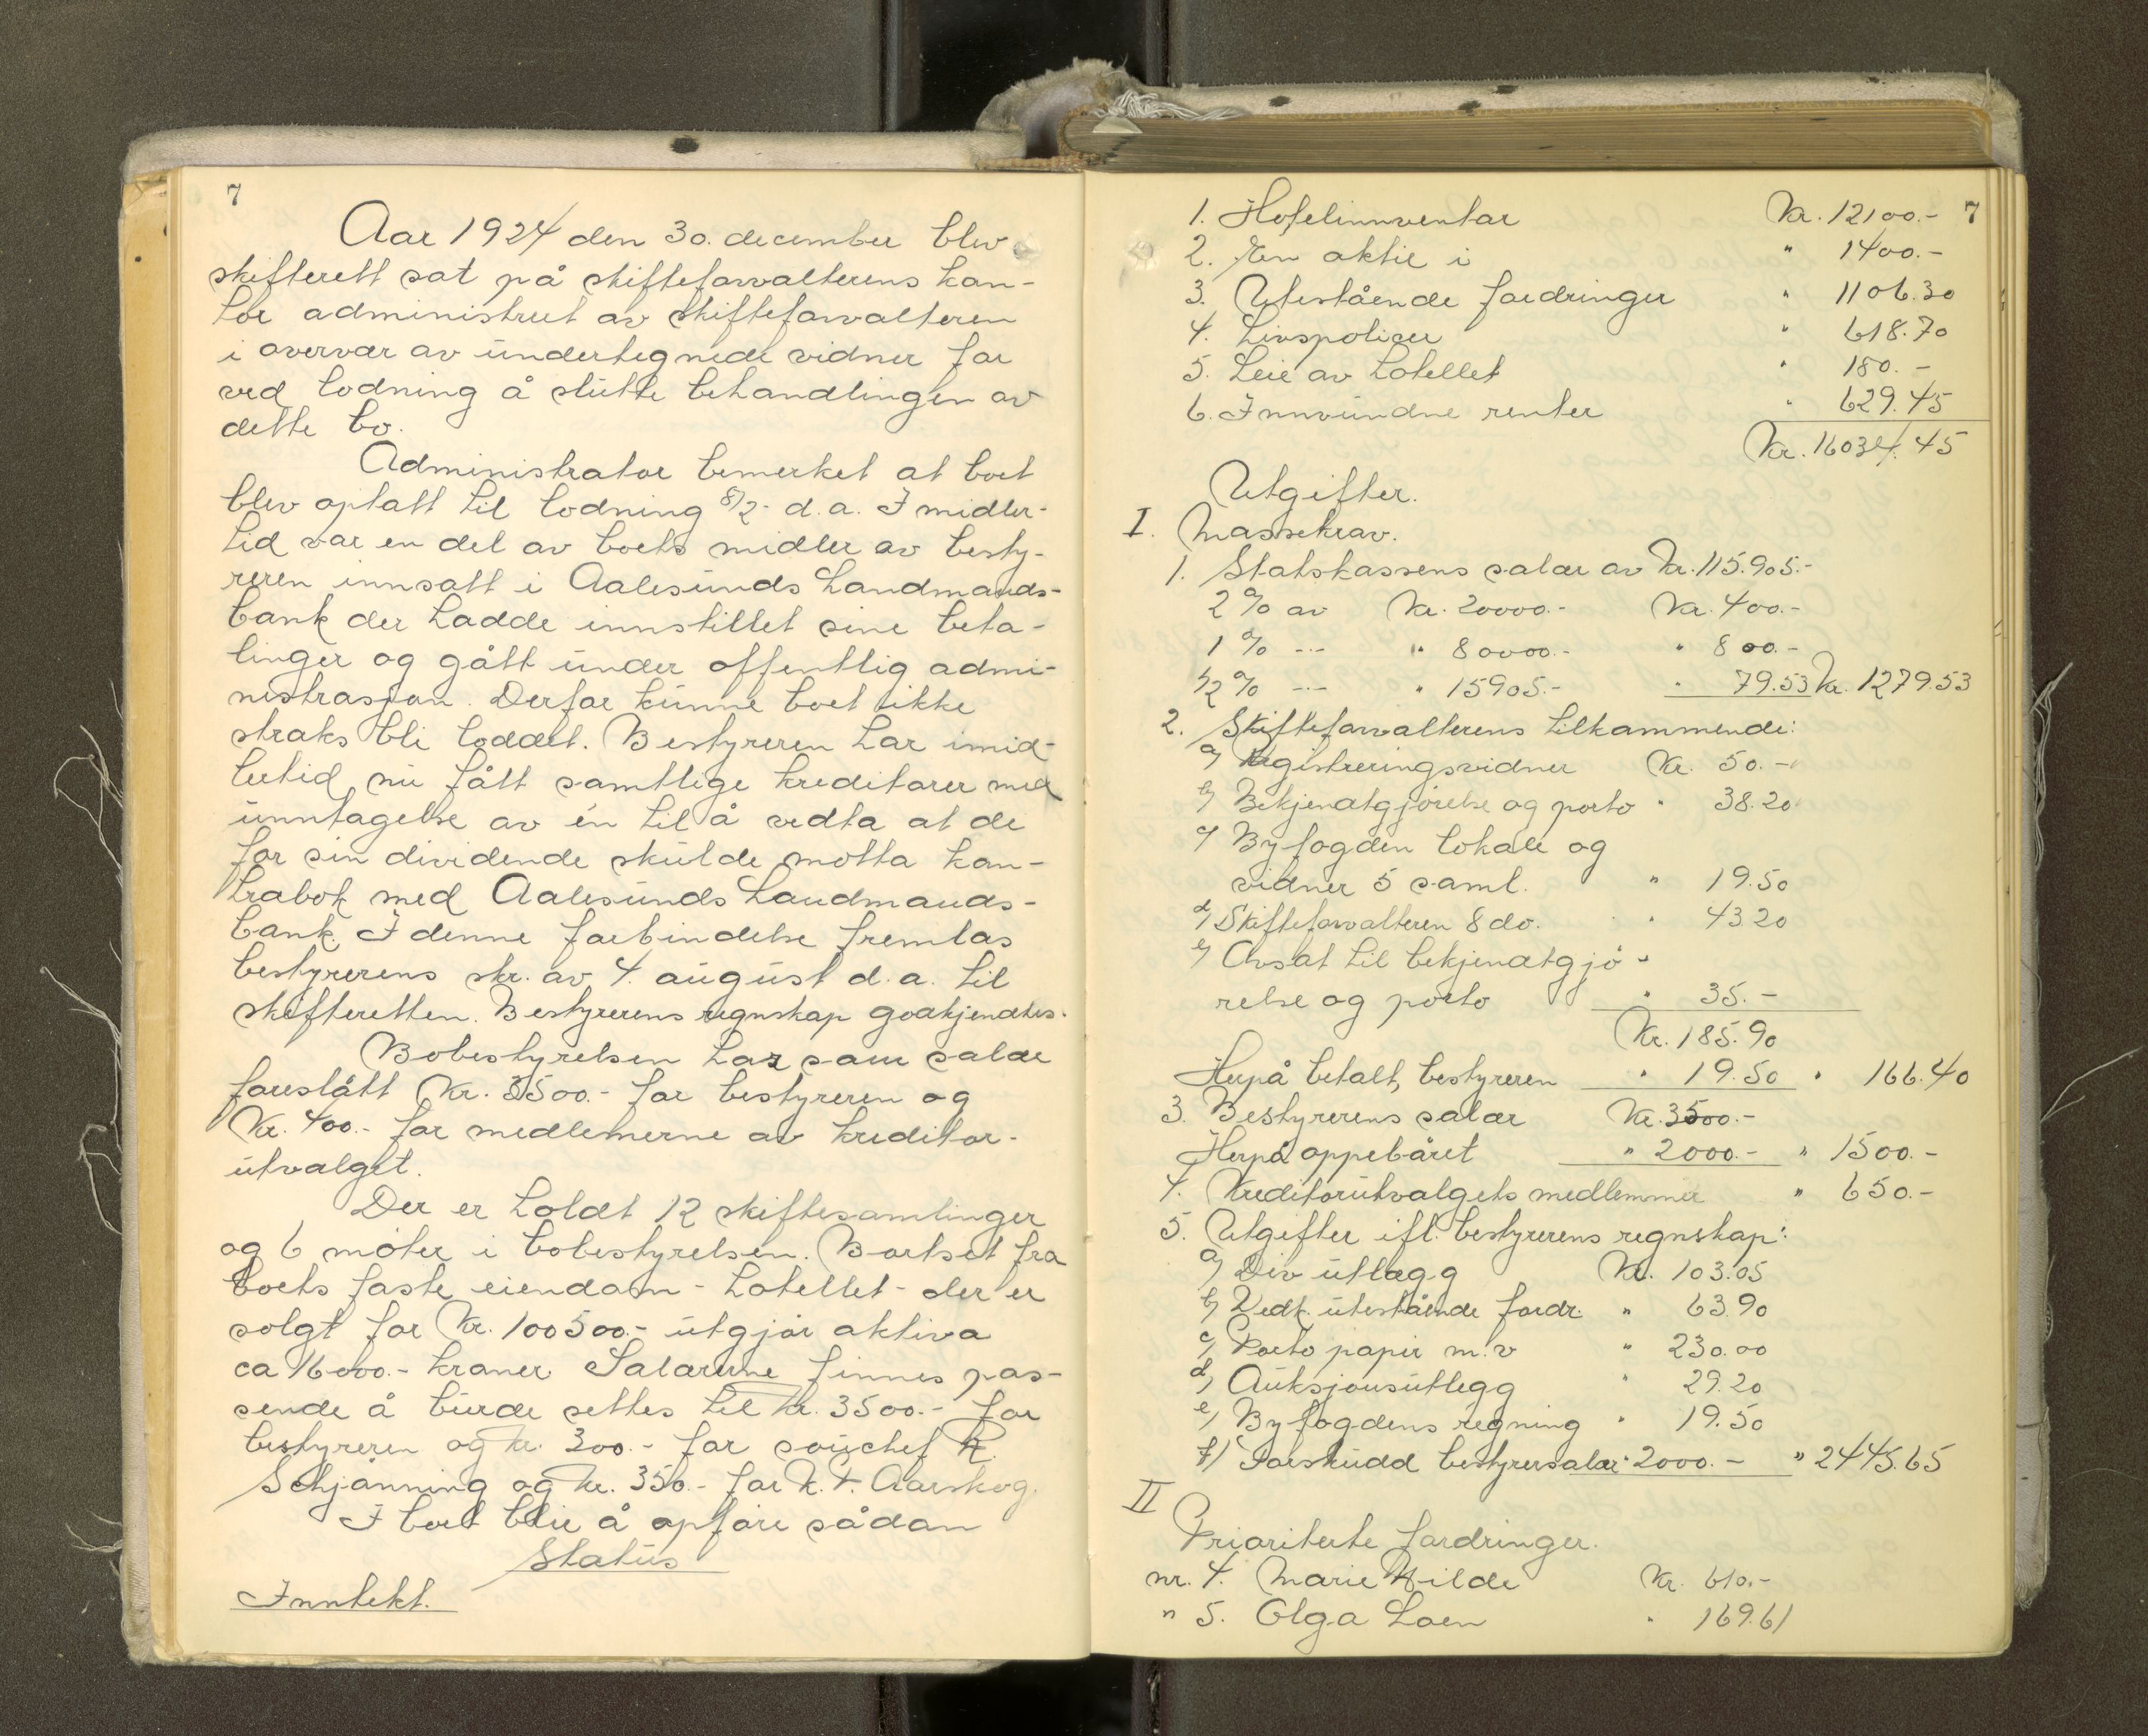 7
Aar 1924 den 30. december blev
skifterett sat på skifteforvalterens kon-
tor administrert av skifteforvalteren
i overvær av undertegnede vidner for
ved lodning å slutte behandlingen av
dette bo.
Administrator bemerket at boet
blev optatt til lodning 8/2- d.a. Imidler-
tid var en del av boets midler av besty-
reren innsatt i Aalesunds Landmands-
bank der hadde innstillet sine beta-
linger og gått under offentlig admi-
nistrasjon. Derfor kunne boet ikke
straks bli loddet. Bestyreren har imid-
lertid nu fått samtlige kreditorer med
unntagelse av én til å vedta at de
for sin dividende skulde motta kon-
trabok med Aalesunds Landmands-
bank. I denne forbindelse fremlas
bestyrerens skr. av 4. august d.a. til
skifteretten. Bestyrerens regnskap godkjendtes.
Bobestyrelsen har som salær
foreslått Kr. 3500.- for bestyreren og
Kr. 400.- for medlemerne av kreditor-
utvalget.
Der er holdt 12 skiftesamlinger
og 6 møter i bobestyrelsen. Bortset fra
boets faste eiendom - hotellet - der er
solgt for Kr. 100500.- utgjør aktiva
ca 16000.- kroner. Salærerne finnes pas-
sende å burde settes til kr. 3500.- for
bestyreren og kr. 300.- for souschef K.
Schjønning og kr. 350.- for K. F. Aarskog.
I boet blir å opføre sådan
Status
Inntekt.
7
1. Hotelinnventar Kr. 12100.-
2. En aktie i " 1400.-
3. Utestående fordringer " 1106.30
4. Livspoliser " 618.70
5. Leie av hotellet " 180.-
6. Innvundne renter " 629.45
Kr. 16034.45
Utgifter.
I. Massekrav.
1. Statskassens salær av Kr. 115.905.-
2% av Kr. 20000.- Kr. 400.-
1% --- " 80000.- " 800.-
1/2% --- " 15905.- " 79.53 Kr. 1279.53
2. Skifteforvalterens tilkommende:
a) Registreringsvidner Kr. 50.-
b) Bekjendtgjørelse og porto " 38.20
c) Byfogden lokale og
vidner 5 saml. " 19.50
d) Skifteforvalteren 8 do. " 43.20
e) Avsat til bekjendtgjø-
relse og porto " 35.-
Kr. 185.90
Herpå betalt, bestyreren " 19.50 " 166.40
3. Bestyrerens salær Kr. 3500.-
Herpå oppebåret " 2000.- " 1500.-
4. Kreditorutvalgets medlemmer " 650.-
5. Utgifter ifl. bestyrerens regnskap:
a) Div utlegg Kr. 103.05
b) Vedk. utestående fordr. " 63.90
c) Porto papir m.v " 230.00
d) Auksjonsutlegg " 29.20
e) Byfogdens regning " 19.50
f) Forskudd bestyrersalær " 2000.- " 2445.65
II
Prioriterte fordringer.
nr. 4. Marie Hilde Kr. 610.-
" 5. Olga Loen " 169.61